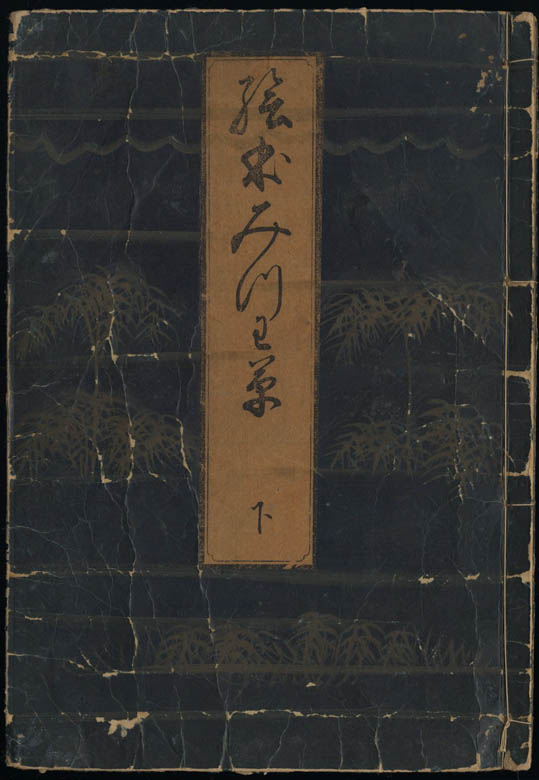 絵本みつわ草
下